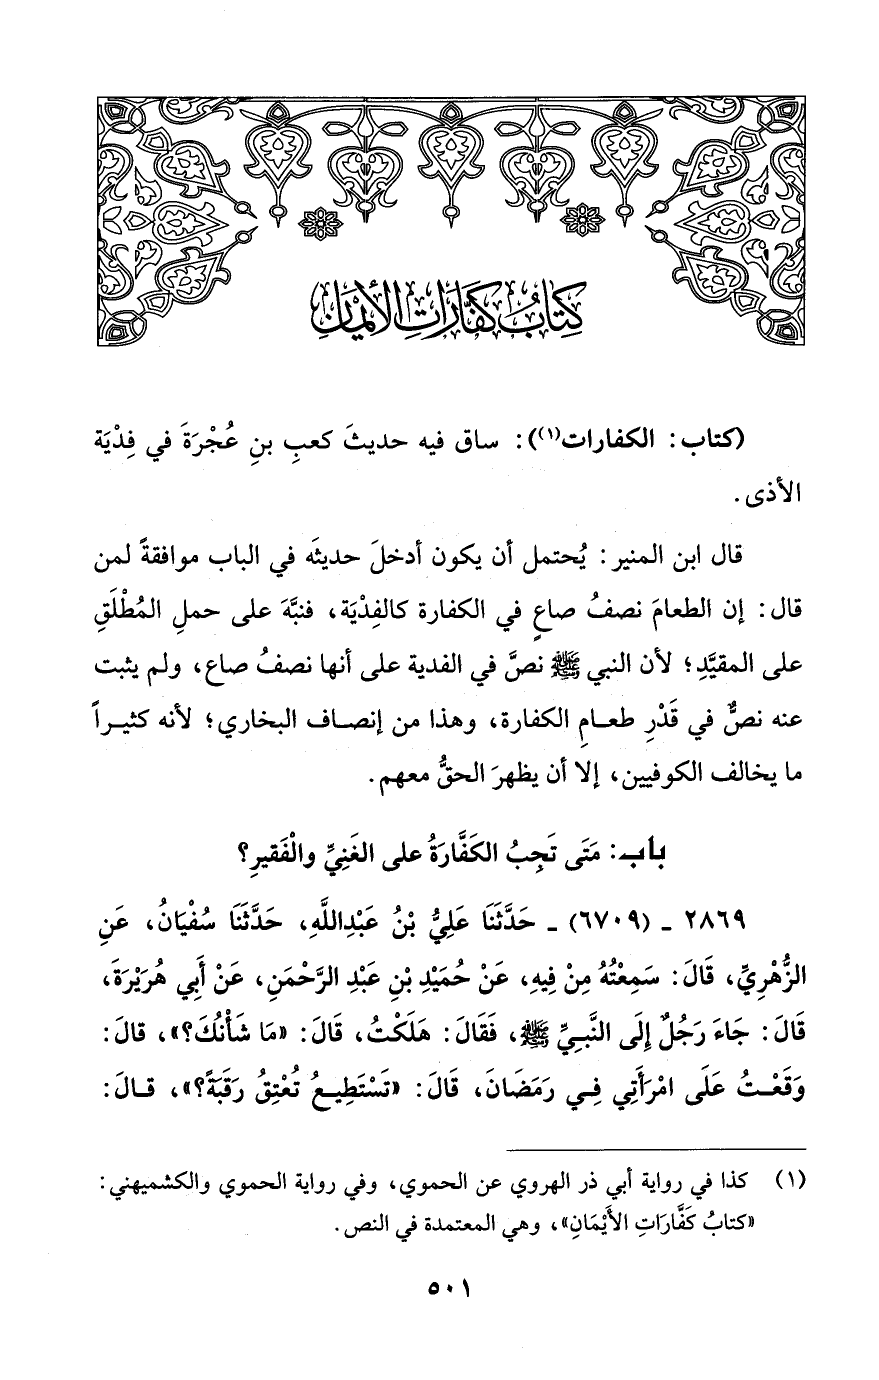 كِتَابُ كَفَّارَاتِ الأَيْمَانِ
(كتاب: الكفارات(١)): ساق فيه حديثَ كعبِ بنِ عُجْرَةَ في فِدْيَة
الأذى.
قال ابن المنير: يُحتمل أن يكون أدخلَ حديثَه في الباب موافقةً لمن
قال: إن الطعامَ نصفُ صاعٍ في الكفارة كالفِدْيَة، فنبَّهَ على حملِ المُطْلَقِ
على المقيَّدِ؛ لأن النبي ﷺ نصَّ في الفدية على أنها نصفُ صاع، ولم يثبت
عنه نصٌّ في قَدْرِ طعـامِ الكفارة، وهذا من إنصـاف البخاري؛ لأنه كثيـراً
ما يخالف الكوفيين، إلا أن يظهرَ الحقُّ معهم.
باب: مَتَى تَجِبُ الكَفَّارَةُ على الغَنِيِّ والْفَقيرِ؟
٢٨٦٩ ـ (٦٧٠٩) ـ حَدَّثَنَا عَلِيُّ بْنُ عَبْدِاللَّهِ، حَدَّثَنَا سُفْيَانُ، عَنِ
الزُّهْرِيِّ، قَالَ: سَمِعْتُهُ مِنْ فِيهِ، عَنْ حُمَيْدِ بْنِ عَبْدِ الرَّحْمَنِ، عَنْ أَبِي هُرَيْرَةَ،
قَالَ: جَاءَ رَجُلٌ إِلَى النَّبِيِّ ﷺ، فَقَالَ: هَلَكْتُ، قَالَ: «مَا شَأْنُكَ؟»، قالَ:
وَقَعْـتُ عَلَى امْرَأَتِي فِـي رَمَضَانَ، قَالَ: «تَسْتَطِيـعُ تُعْتِقُ رَقَبَةً؟»، قـالَ:
(١) كذا في رواية أبي ذر الهروي عن الحموي، وفي رواية الحموي والكشميهني:
«كتابُ كَفَّارَاتِ الأَيْمَانِ»، وهي المعتمدة في النص.
٥٠١